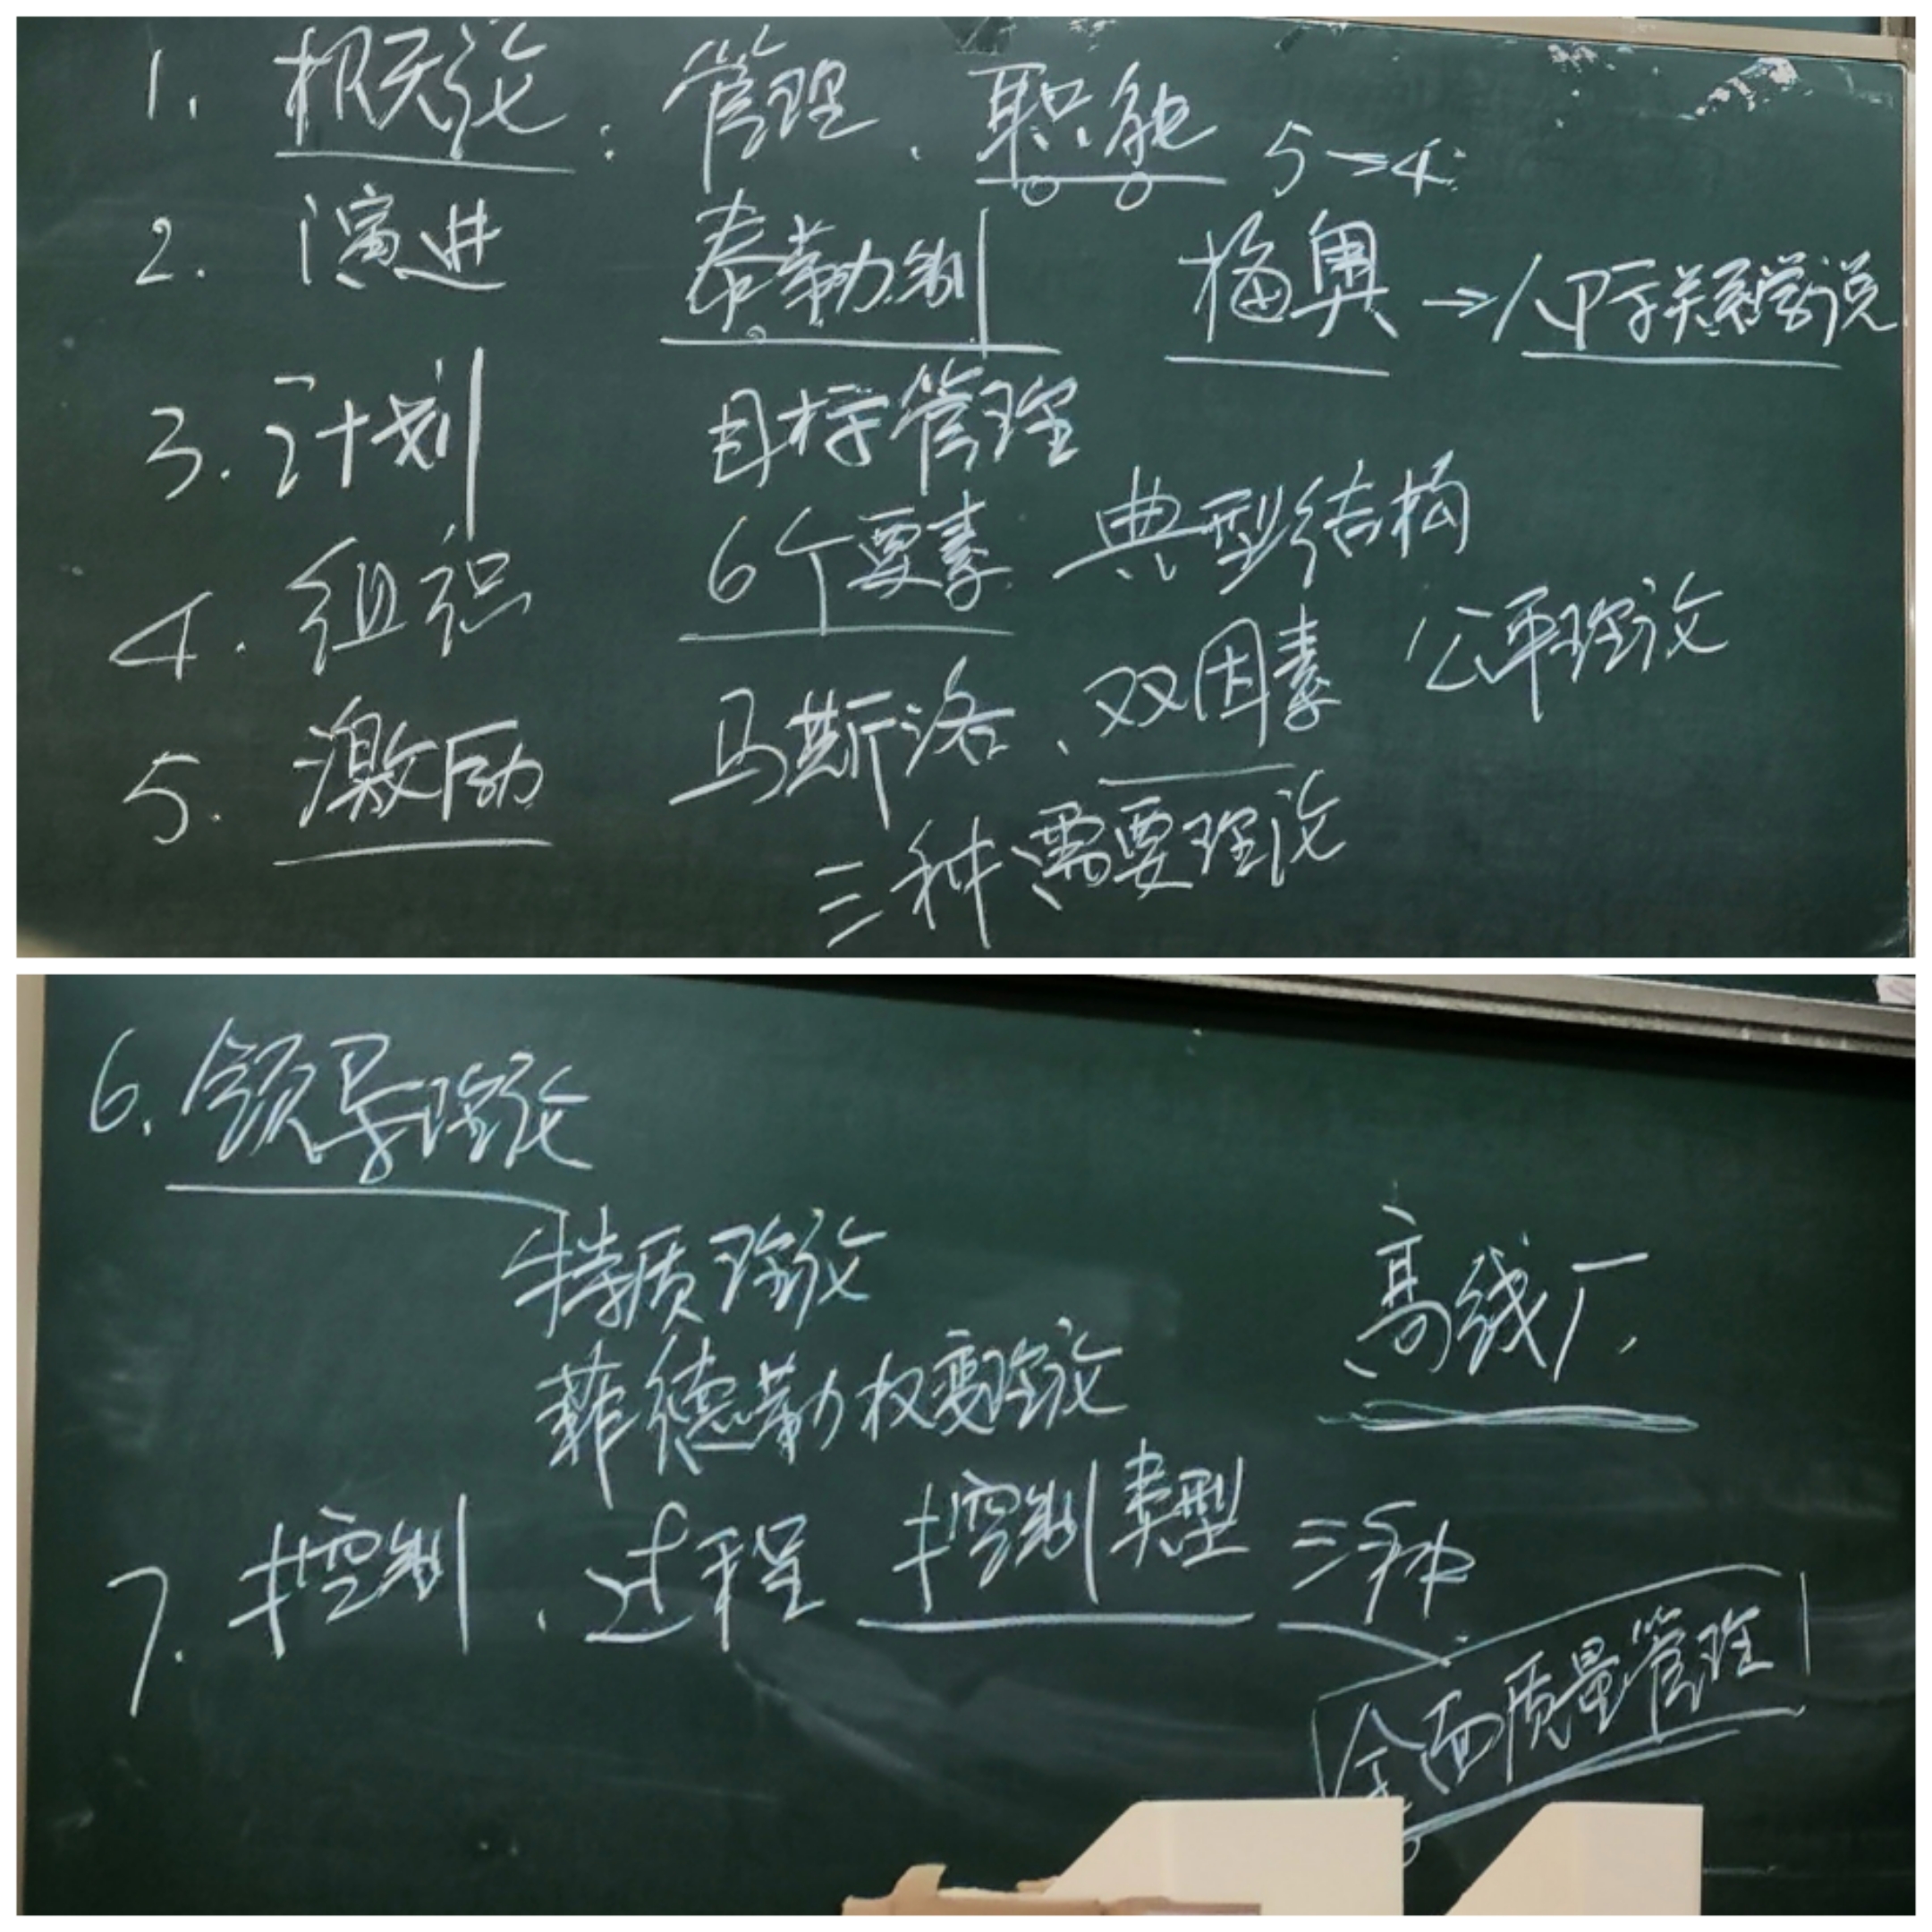 1. 概论: 管理、职能 5→4
2. 演进 泰勒制 梅奥→人际关系学说
3. 计划 目标管理
4. 组织 6个要素 典型结构
5. 激励 马斯洛、双因素 公平理论
三种需要理论
6. 领导理论
特质理论
菲德勒权变理论
高线厂
7. 控制、过程 控制类型 三种
全面质量管理